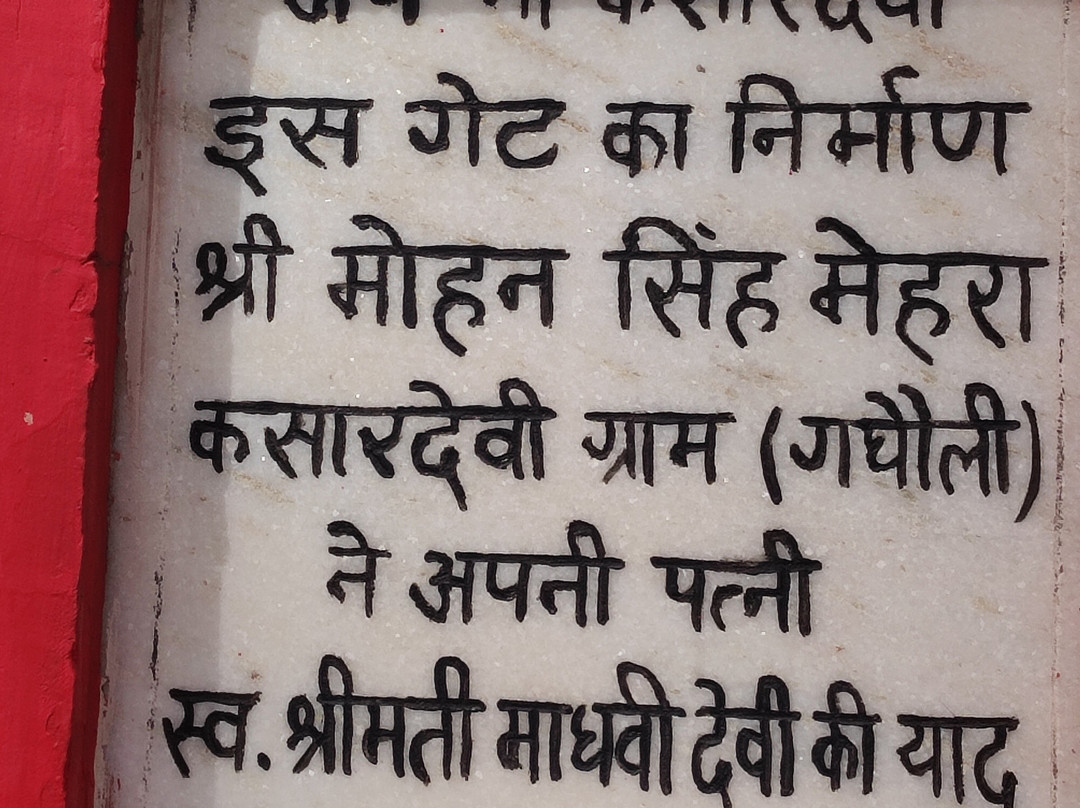 जय माँ कसारदेवी
इस गेट का निर्माण
श्री मोहन सिंह मेहरा
कसारदेवी ग्राम (गधौली)
ने अपनी पत्नी
स्व. श्रीमती माधवी देवी की याद